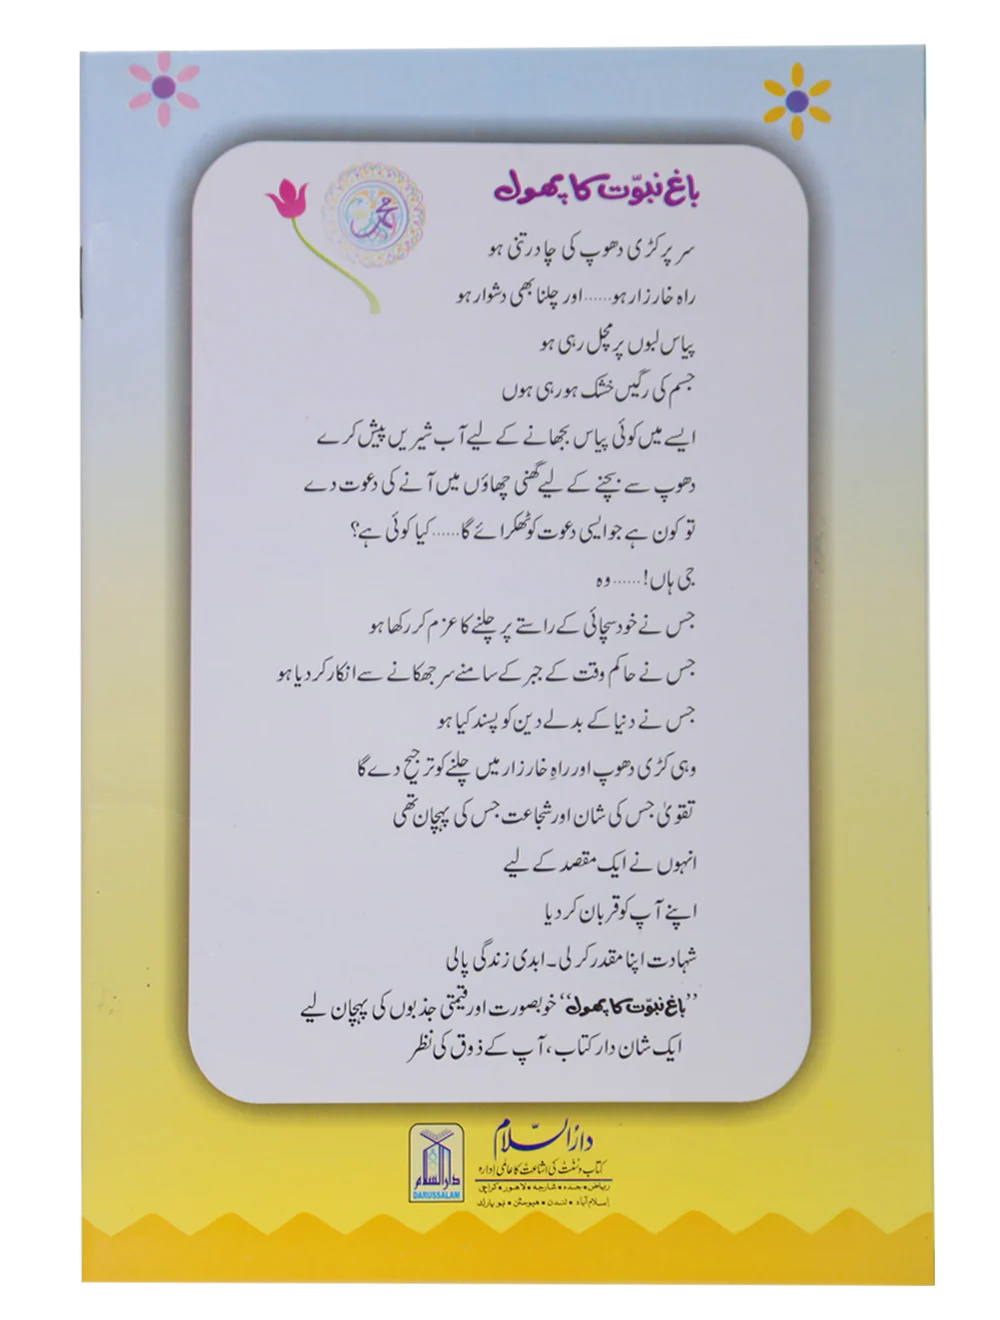 باغِ نبوّت کا پھول
محمد
سر پر کڑی دھوپ کی چادر تنی ہو
راہ خارزار ہو ...... اور چلنا بھی دشوار ہو
پیاس لبوں پر مچل رہی ہو
جسم کی رگیں خشک ہو رہی ہوں
ایسے میں کوئی پیاس بجھانے کے لیے آب شیریں پیش کرے
دھوپ سے بچنے کے لیے گھنی چھاؤں میں آنے کی دعوت دے
تو کون ہے جو ایسی دعوت کو ٹھکرائے گا ...... کیا کوئی ہے؟
جی ہاں! ...... وہ
جس نے خود سچائی کے راستے پر چلنے کا عزم کر رکھا ہو
جس نے حاکم وقت کے جبر کے سامنے سر جھکانے سے انکار کر دیا ہو
جس نے دنیا کے بدلے دین کو پسند کیا ہو
وہی کڑی دھوپ اور راہِ خارزار میں چلنے کو ترجیح دے گا
تقویٰ جس کی شان اور شجاعت جس کی پہچان تھی
انہوں نے ایک مقصد کے لیے
اپنے آپ کو قربان کر دیا
شہادت اپنا مقدر کر لی۔ ابدی زندگی پالی
”باغِ نبوّت کا پھول“ خوبصورت اور قیمتی جذبوں کی پہچان لیے
ایک شان دار کتاب، آپ کے ذوق کی نظر
دارالسلام
کتاب و سنت کی اشاعت کا عالمی ادارہ
ریاض • جدہ • شارجہ • لاہور • کراچی
اسلام آباد • لندن • ہیوسٹن • نیو یارک
دارالسلام
DARUSSALAM